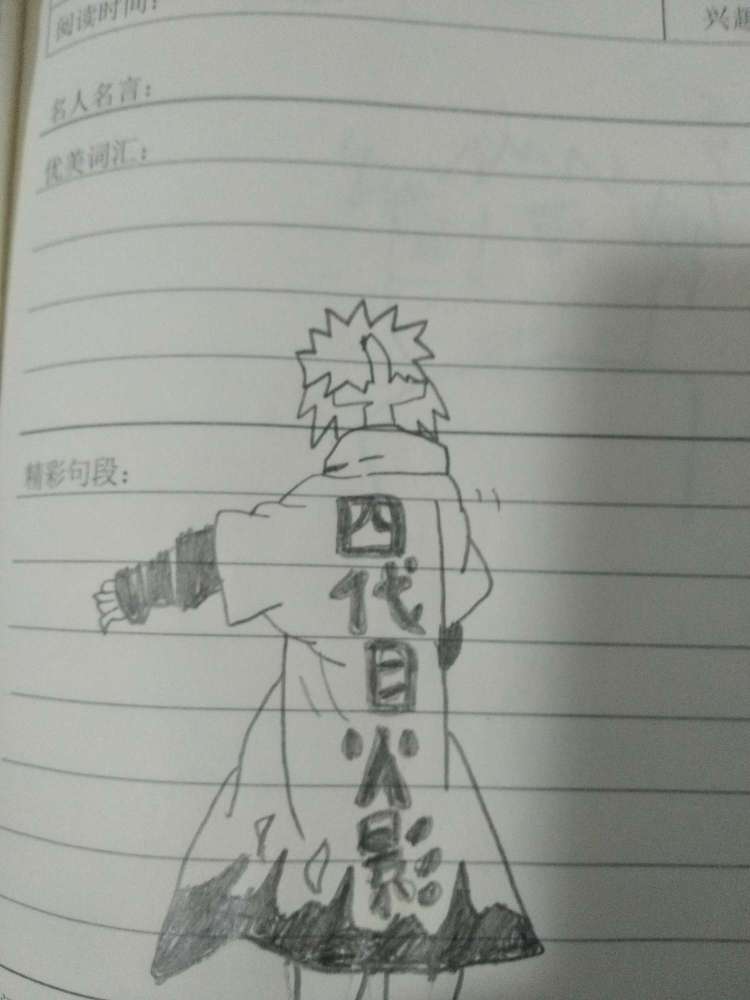 阅读时间：
兴趣
名人名言：
优美词汇：
精彩句段：
四代目火影